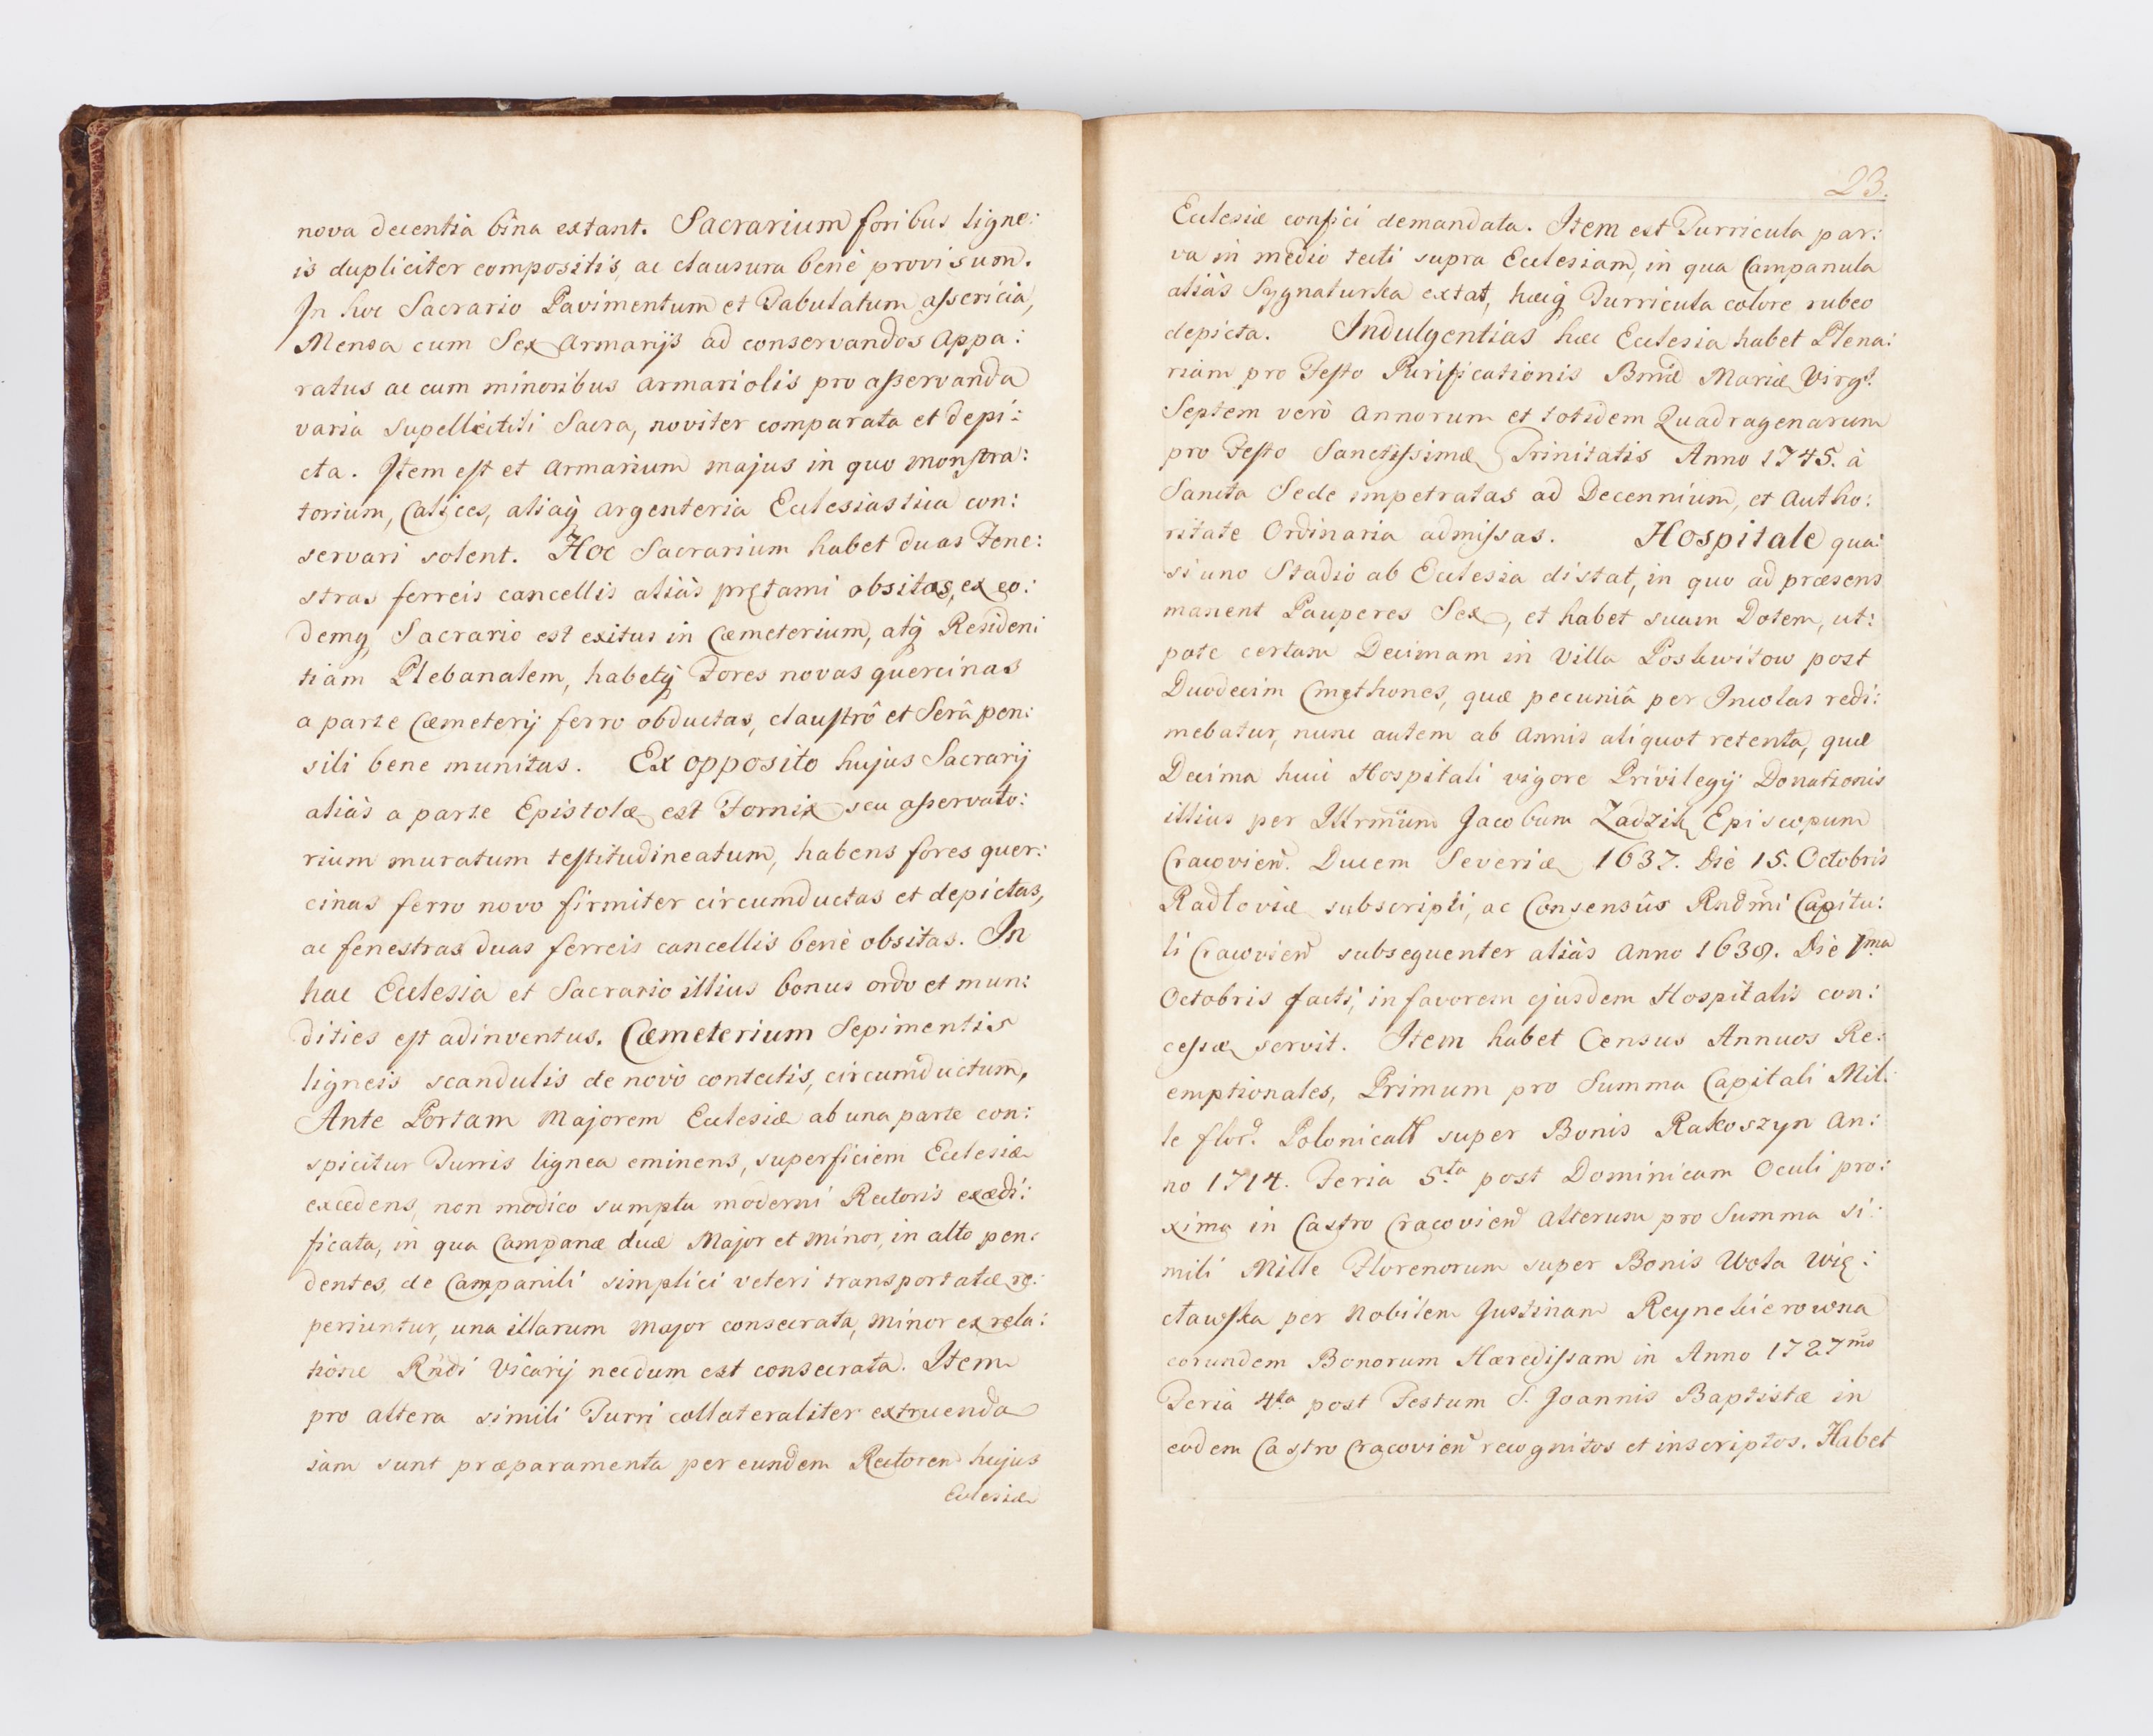 nova decentia bina extant. Sacrarium foribus ligne:
is dupliciter compositis, ac clausura benè provisum.
In hoc Sacrario Pavimentum et Tabulatum assericia,
Mensa cum Sex Armarijs ad conservandos Appa:
ratus ac cum minoribus armariolis pro asservanda
varia supellectili Sacra, noviter comparata et depi:
cta. Item est et Armarium majus in quo monstra:
torium, Calices, aliaq̃ argenteria Ecclesiastica con:
servari solent. Hoc Sacrarium habet duas Fene:
stras ferreis cancellis aliàs prętami obsitas, ex eo:
demq̃ Sacrario est exitus in Cæmeterium, atq̃ Residen:
tiam Plebanalem, habetq̃ Fores novas quercinas
a parte Cæmeterij ferro obductas, claustrô et Serâ pen:
sili bene munitas. Ex opposito hujus Sacrarij
aliàs a parte Epistolæ est Fornix seu asservato:
rium muratum testitudineatum, habens fores quer:
cinas ferro novo firmiter circumductas et depictas,
ac fenestras duas ferreis cancellis benè obsitas. In
hac Ecclesia et Sacrario illius bonus ordo et mun:
dities est adinventus. Cæmeterium Sepimentis
ligneis scandulis de novò contectis, circumductum,
Ante Portam Majorem Ecclesiæ ab una parte con:
spicitur Turris lignea eminens, superficiem Ecclesiæ
excedens, non modico sumptu moderni Rectoris exædi:
ficata, in qua Campanæ duæ Major et minor, in alto pen:
dentes, de Campanili simplici veteri transportatæ re:
periuntur, una illarum major consecrata, minor ex rela:
tione Rñdi Vicarij necdum est consecrata. Item
pro altera simili Turri collateraliter extruenda
iam sunt præparamenta per eundem Rectorem hujus
Ecclesiæ
23.
Ecclesiæ confici demandata. Item est Turricula par:
va in medio tecti supra Ecclesiam, in qua Campanula
aliàs Sygnaturka extat, hæcq̃ Turricula colore rubeo
depicta. Indulgentias hæc Ecclesia habet Plena:
riam pro Festo Purificationis Bmæ Mariæ Virgs.
Septem verò Annorum et totidem Quadragenarum
pro Festo Sanctissimæ Trinitatis Anno 1745. à
Sancta Sede impetratas ad Decennium, et Autho:
ritate Ordinaria admissas. Hospitale qua:
si uno Stadio ab Ecclesia distat, in quo ad præsens
manent Pauperes Sex, et habet suam Dotem, ut:
pote certam Decimam in Villa Poskwitow post
Duodecim Cmethones, quæ pecuniâ per Incolas redi:
mebatur, nunc autem ab Annis aliquot retenta, quæ
Decima huic Hospitali vigore Privilegij Donationis
illius per Illrmũm Jacobum Zadzik Episcopum
Cracovien̄. Ducem Severiæ 1637. Diè 15. Octobris
Radłoviæ subscripti, ac Consensûs Rndm̃i Capitu:
li Cracovien̄ subsequenter aliàs Anno 1638. Diè 1ma
Octobris facti, in favorem ejusdem Hospitalis con:
cessæ servit. Item habet Census Annuos Re:
emptionales, Primum pro Summa Capitali Mil:
le flor. Polonicall super Bonis Rakoszyn An:
no 1714. Feria 5ta post Dominicam Oculi pro:
xima in Castro Cracovien̄ Alterum pro Summa si:
mili Mille Florenorum super Bonis Wola Wię:
cławska per Nobilem Justinam Reynekierowna
eorundem Bonorum Hæredissam in Anno 1727mo
Feria 4ta post Festum S. Joannis Baptistæ in
eodem Castro Cracovien̄ recognitos et inscriptos. Habet